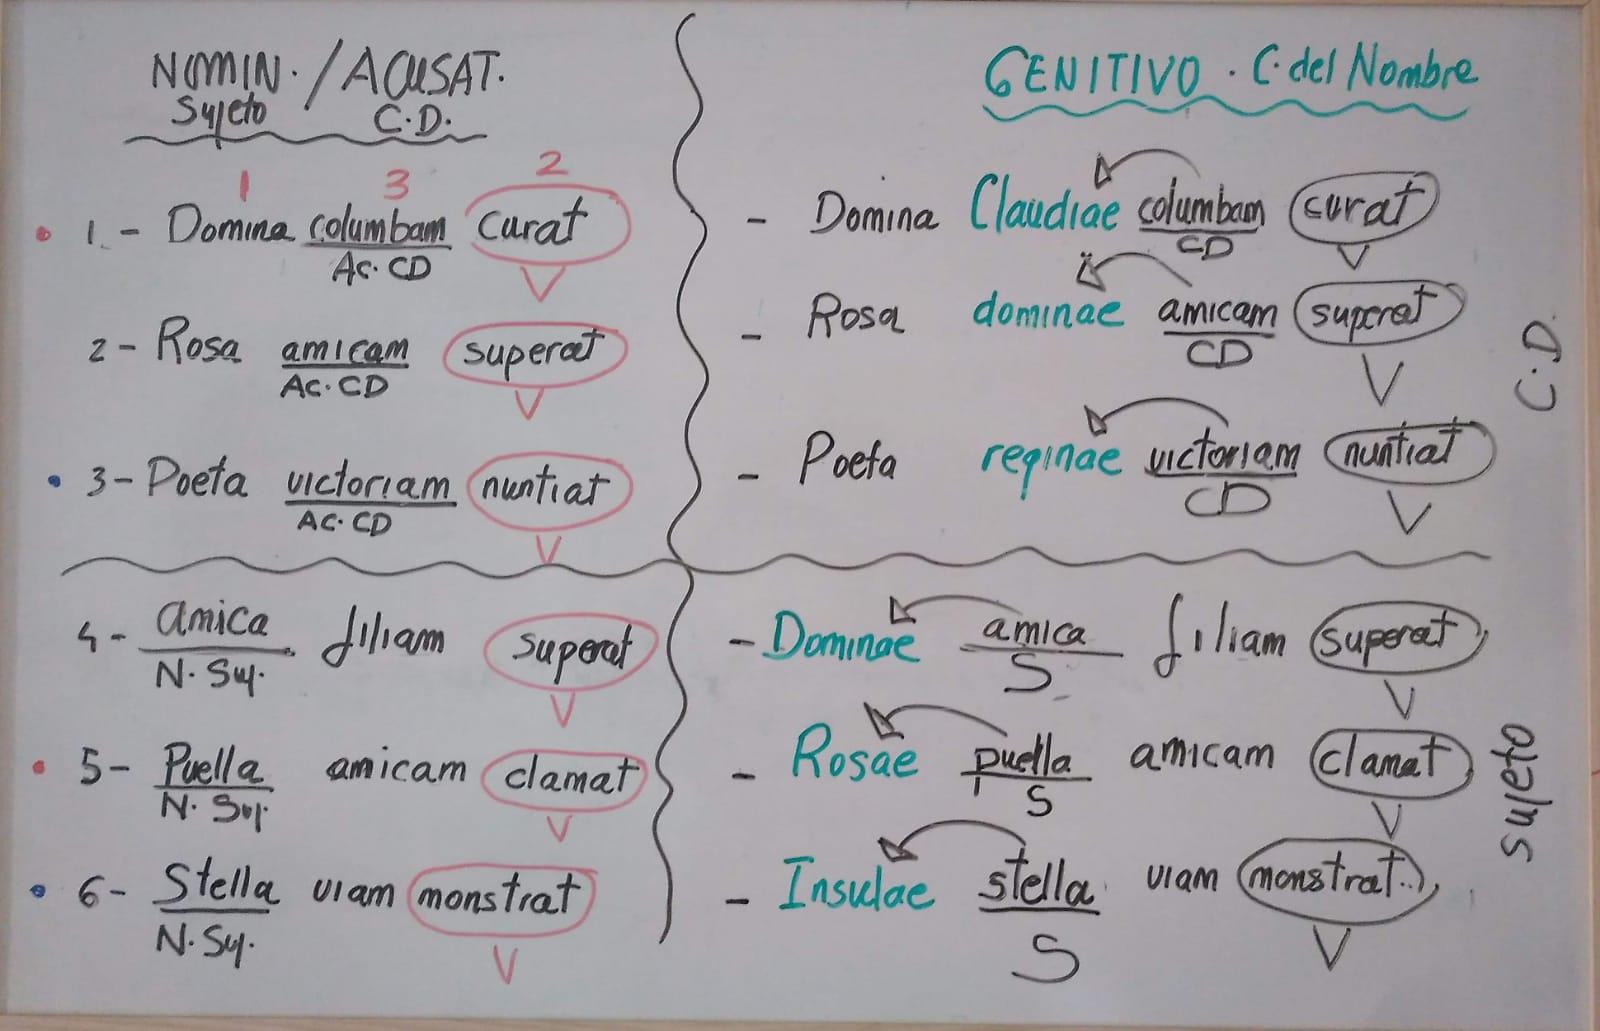 NOMIN. / ACUSAT.
Sujeto C.D.
1 3 2
1.- Domina columbam curat
Ac. CD
V
2- Rosa amicam superat
Ac. CD
V
3- Poeta victoriam nuntiat
Ac. CD
V
4- amica filiam superat
N. Suj.
V
5- Puella amicam clamat
N. Suj.
V
6- Stella viam monstrat
N. Suj.
V
GENITIVO. C. del Nombre
- Domina Claudiae columbam curat
CD
V
- Rosa dominae amicam superat
CD
V
- Poeta reginae victoriam nuntiat
CD
V
C.D.
- Dominae amica filiam superat
S
V
- Rosae puella amicam clamat
S
V
- Insulae stella viam monstrat
S
V
sujeto